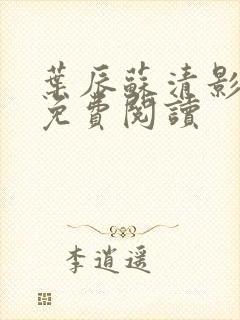 葉辰蘇清影
免費閱讀
李逍遥